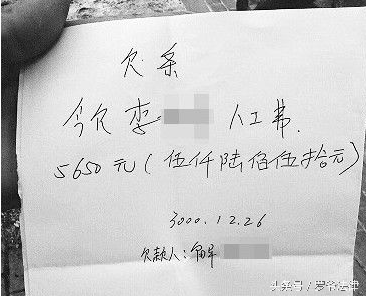 欠条
今欠李 人工费.
5650元(伍仟陆佰伍拾元)
3000.12.26
欠款人:
头条号/爱爷法律